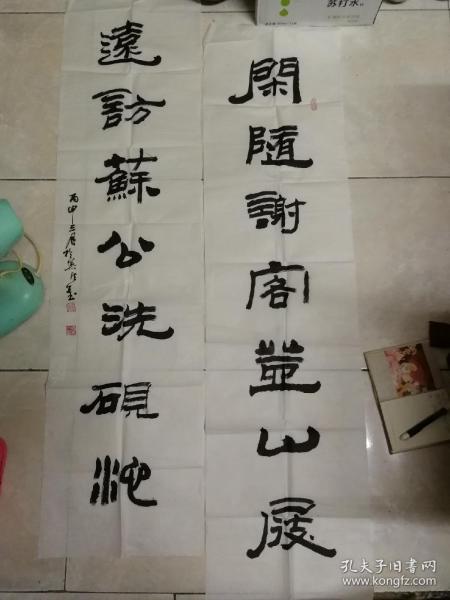 閑隨謝客登山屐
遠訪蘇公洗硯池
丙申三月於
苏打水
孔夫子旧书网
www.kongfz.com